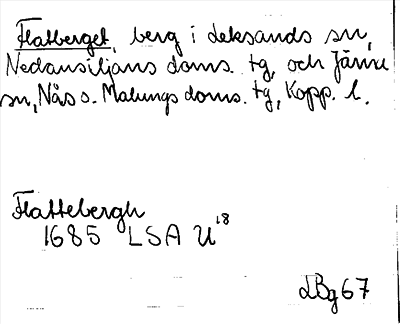 Flatberget, berg i Leksands sn,
Nedansiljans doms. tg, och Järna
sn, Nås o. Malungs doms. tg, Kopp. l.
Flattebergh
1685 LSA U18
LBg67